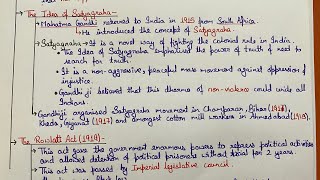 The Idea of Satyagraha-
Mahatma Gandhi returned to India in 1915 from South Africa.
He introduced the concept of Satyagraha.
Satyagraha → It is a novel way of fighting the colonial rule in India.
• The idea of Satyagraha emphasised the power of truth & need to
search for truth.
• It is a non-aggressive, peaceful mass movement against oppression &
injustice.
• Gandhiji believed that this dharma of non-violence could unite all
Indians.
Gandhiji organised Satyagraha movement in Champaran, Bihar
Kheda, Gujarat (1917) and amongst cotton mill workers in Ahmedabad (1918).
The Rowlatt Act (1919)-
This act gave the government enormous powers to repress political activities
and allowed detention of political prisoners without trial for 2 years.
This act was passed by Imperial Legislative council.